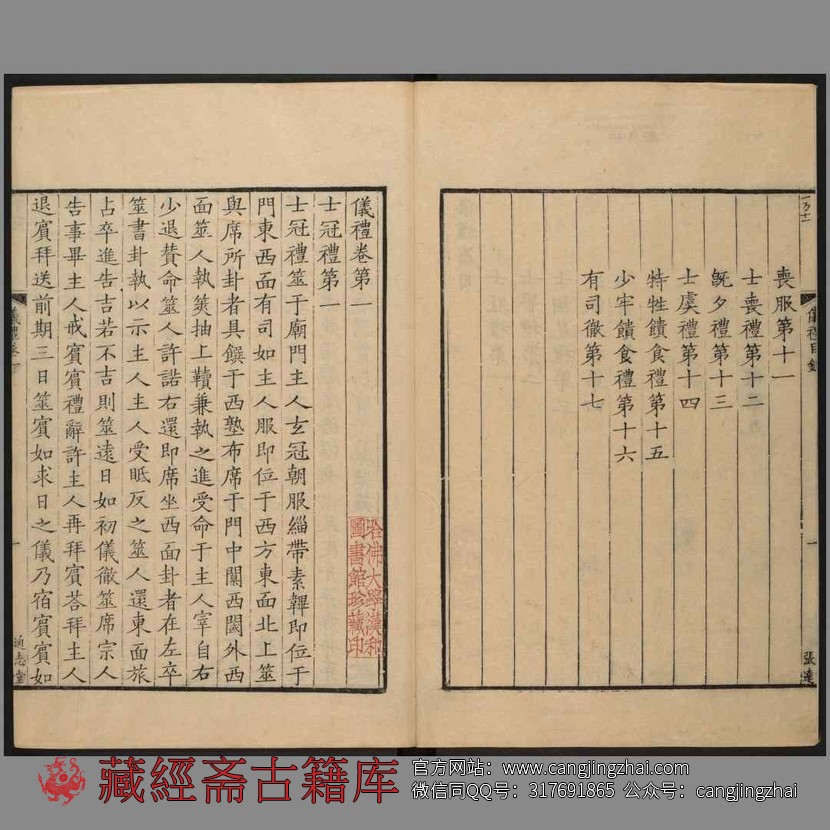 喪服第十一
士喪禮第十二
旣夕禮第十三
士虞禮第十四
特牲饋食禮第十五
少牢饋食禮第十六
有司徹第十七
儀禮目錄
一
張達
儀禮卷第一
士冠禮第一
士冠禮筮于廟門主人玄冠朝服緇帶素韠即位于
門東西面有司如主人服即位于西方東面北上筮
與席所卦者具饌于西塾布席于門中闑西閾外西
面筮人執筴抽上韇兼執之進受命于主人宰自右
少退贊命筮人許諾右還即席坐西面卦者在左卒
筮書卦執以示主人主人受眡反之筮人還東面旅
占卒進告吉若不吉則筮遠日如初儀徹筮席宗人
告事畢主人戒賓賓禮辭許主人再拜賓荅拜主人
退賓拜送前期三日筮賓如求日之儀乃宿賓賓如
儀禮卷
一
通志堂
哈佛大學漢和
圖書館珍藏印
藏經斋古籍库
官方网站：www.cangjingzhai.com
微信同QQ号：317691865 公众号：cangjingzhai